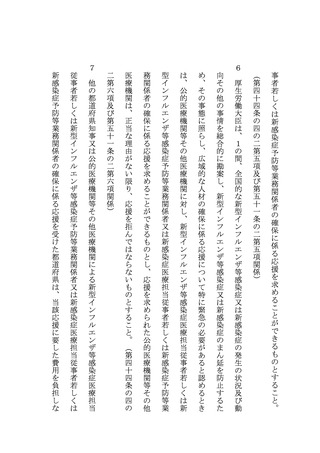 事者若しくは新感染症予防等業務関係者の確保に係る応援を求めることができるものとすること。
（第四十四条の四の二第五項及び第五十一条の二第五項関係）
6 厚生労働大臣は、1の間、全国的な新型インフルエンザ等感染症又は新感染症の発生の状況及び動
向その他の事情を総合的に勘案し、新型インフルエンザ等感染症又は新感染症のまん延を防止するた
め、その事態に照らし、広域的な人材の確保に係る応援について特に緊急の必要があると認めるとき
は、公的医療機関等その他医療機関に対し、新型インフルエンザ等感染症医療担当従事者若しくは新
型インフルエンザ等感染症予防等業務関係者又は新感染症医療担当従事者若しくは新感染症予防等業
務関係者の確保に係る応援を求めることができるものとし、応援を求められた公的医療機関等その他
医療機関は、正当な理由がない限り、応援を拒んではならないものとすること。（第四十四条の四の
二第六項及び第五十一条の二第六項関係）
7 他の都道府県知事又は公的医療機関等その他医療機関による新型インフルエンザ等感染症医療担当
従事者若しくは新型インフルエンザ等感染症予防等業務関係者又は新感染症医療担当従事者若しくは
新感染症予防等業務関係者の確保に係る応援を受けた都道府県は、当該応援に要した費用を負担しな